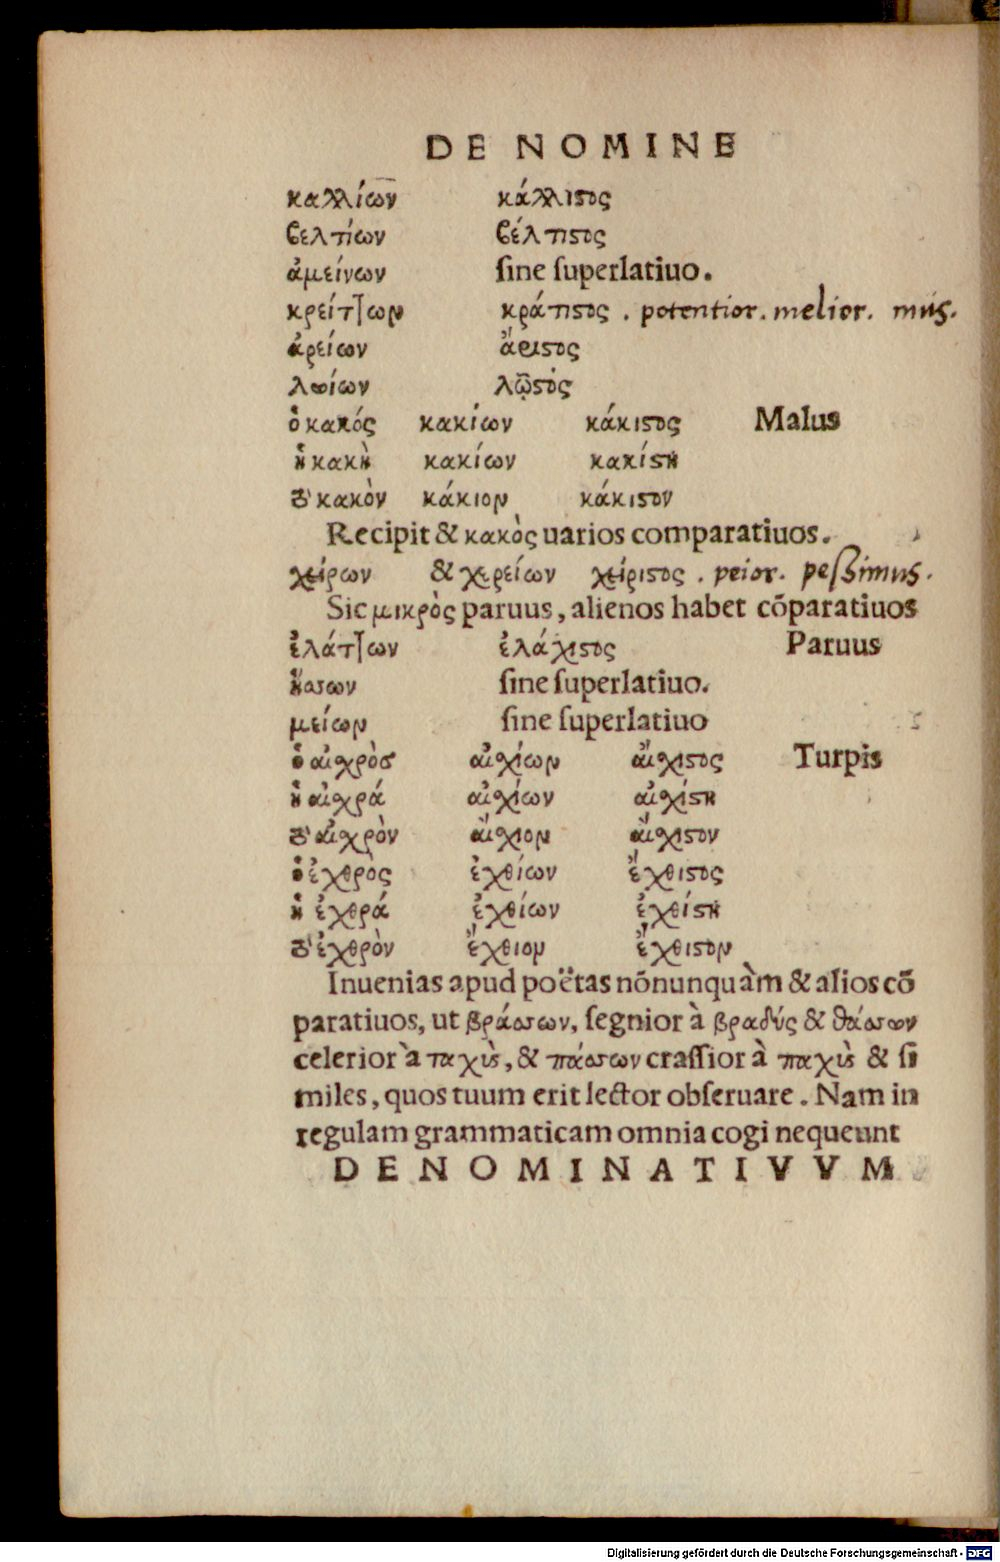 DE NOMINE
καλλίων κάλλιστος
βελτίων βέλτιστος
ἀμείνων sine superlatiuo.
κρείτ]ων κράτιστος . potentior. melior. mus.
ἀρείων ἄριστος
λωίων λῷστὸς
ὁ κακός κακίων κάκιστος Malus
ἡ κακὴ κακίων κακίστη
τὸ κακὸν κάκιον κάκιστον
Recipit & κακὸς uarios comparatiuos.
χείρων & χερείων χείριστος . peior. pessimus.
Sic μικρὸς paruus, alienos habet cōparatiuos
ἐλάτ]ων ἐλάχιστος Paruus
ἥσσων sine superlatiuo.
μείων sine superlatiuo
ὁ αἰσχρὸς αἰσχίων αἴσχιστος Turpis
ἡ αἰσχρά αἰσχίων αἰσχίστη
τὸ αἰσχρὸν αἴσχιον αἴσχιστον
ὁ ἐχθρὸς ἐχθίων ἔχθιστος
ἡ ἐχθρά ἐχθίων ἐχθίστη
τὸ ἐχθρὸν ἔχθιον ἔχθιστον
Inuenias apud poëtas nōnunquàm & alios cō
paratiuos, ut βράσσων, segnior à βραδύς & θάσσων
celerior à ταχὺς, & πάσσων crassior à παχὺς & si
miles, quos tuum erit lector obseruare. Nam in
regulam grammaticam omnia cogi nequeunt
DENOMINATIVVM
Digitalisierung gefördert durch die Deutsche Forschungsgemeinschaft - DFG